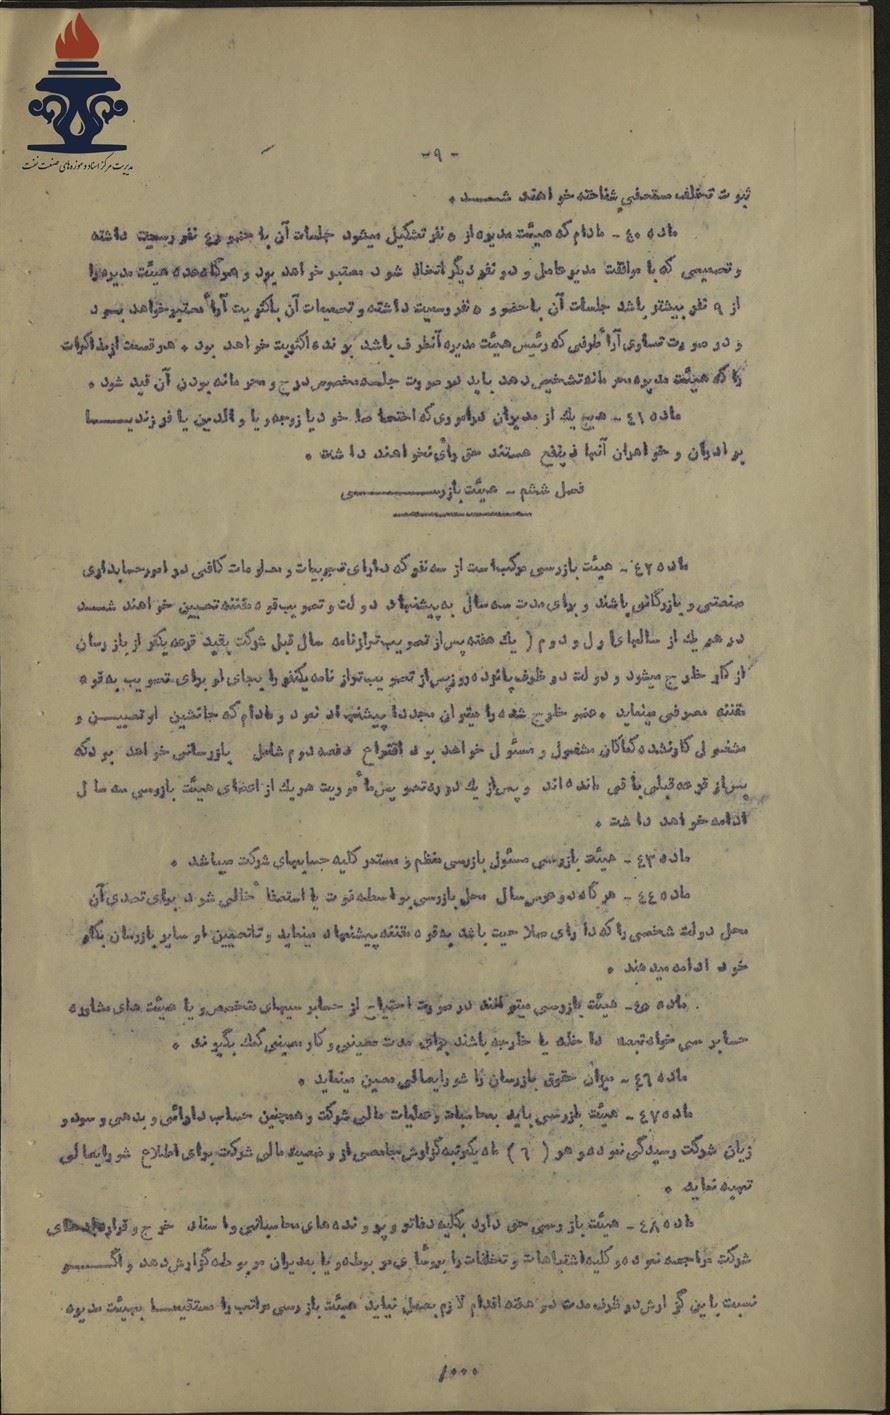 مدیریت مرکز اسناد و موزه‌های صنعت نفت
-۹-
ثبوت تخلف منفصل شناخته خواهند شد .
ماده ۴۰ - مادام که هیئت مدیره از ۵ نفر تشکیل میشود جلسات آن با حضور ۴ نفر رسمیت داشته
و تصمیمی که با موافقت مدیر عامل و دو نفر دیگر اتخاذ شود معتبر خواهد بود و هرگاه عده هیئت مدیره را
از ۹ نفر بیشتر باشد جلسات آن با حضور ۵ نفر رسمیت داشته و تصمیمات آن باکثریت آراٴ معتبر خواهد بود
و در صورت تساوی آراٴ طرفی که رئیس هیئت مدیره آنطرف باشد برنده اکثریت خواهد بود . هر قسمت از مذاکرات
را که هیئت مدیره محرمانه تشخیص دهد باید در صورت جلسه مخصوص درج و محرمانه بودن آن قید شود .
ماده ۴۱ - هیچ یك از مدیران در اموری که اختصاصا خود یا زوجه و یا والدین یا فرزند یا
برادران و خواهران آنها ذینفع هستند حق رأی نخواهند داشت .
فصل ششم - هیئت بازرسی
ماده ۴۲ - هیئت بازرسی مرکب است از سه نفر که دارای تجربیات و معلومات کافی در امور حسابداری
صنعتی و بازرگانی باشند و برای مدت سه سال به پیشنهاد دولت و تصویب قوه مقننه تعیین خواهند شد
در هر یك از سالهای اول و دوم ( یك هفته پس از تصویب ترازنامه سال قبل شرکت بقید قرعه یکنفر از بازرسان
از کار خارج میشود و دولت در ظرف پانزده روز پس از تصویب ترازنامه یکنفر را بجای او برای تصویب به قوه
مقننه معرفی مینماید . عضو خارج شده را میتوان مجددا پیشنهاد نمود و مادام که جانشین او تعیین و
مشغول کار نشده کماکان مشغول و مسئول خواهد بود اقتراع دفعه دوم شامل بازرسانی خواهد بود که
پس از قرعه قبلی باقی مانده اند و پس از یك دوره تعویض مأموریت هر یك از اعضای هیئت بازرسی سه سال
ادامه خواهد داشت .
ماده ۴۳ - هیئت بازرسی مسئول بازرسی منظم و مستمر کلیه حسابهای شرکت میباشد .
ماده ۴۴ - هرگاه در عرض سال محل بازرسی بواسطه فوت یا استعفا خالی شود برای تصدی آن
محل دولت شخصی را که دارای صلاحیت باشد به قوه مقننه پیشنهاد مینماید و تا تعیین او سایر بازرسان بکار
خود ادامه میدهند .
ماده ۴۵ - هیئت بازرسی میتوانند در صورت احتیاج از حسابرسیهای متخصص و یا هیئت های مشاوره
حسابرسی خواه تبعه داخله یا خارجه باشند برای مدت معینی و کار معینی کمك بگیرند .
ماده ۴۶ - میزان حقوق بازرسان را شورایعالی معین مینماید .
ماده ۴۷ - هیئت بازرسی باید بمحاسبات و عملیات مالی شرکت و همچنین حساب دارائی و بدهی و سود و
زیان شرکت رسیدگی نموده و هر ( ٦ ) ماه یکمرتبه گزارش جامعی از وضعیت مالی شرکت برای اطلاع شورایعالی
تهیه نماید .
ماده ۴۸ - هیئت بازرسی حق دارد بکلیه دفاتر و پرونده های محاسباتی و اسناد خرج و قراردادهای
شرکت مراجعه نموده و کلیه اشتباهات و تخلفات را بروٴسای مربوطه و یا بمدیران مربوطه گزارش دهد و اگر
نسبت باین گزارش در ظرف مدت دو هفته اقدام لازم بعمل نیاید هیئت بازرسی مراتب را مستقیما بهیئت مدیره
/...